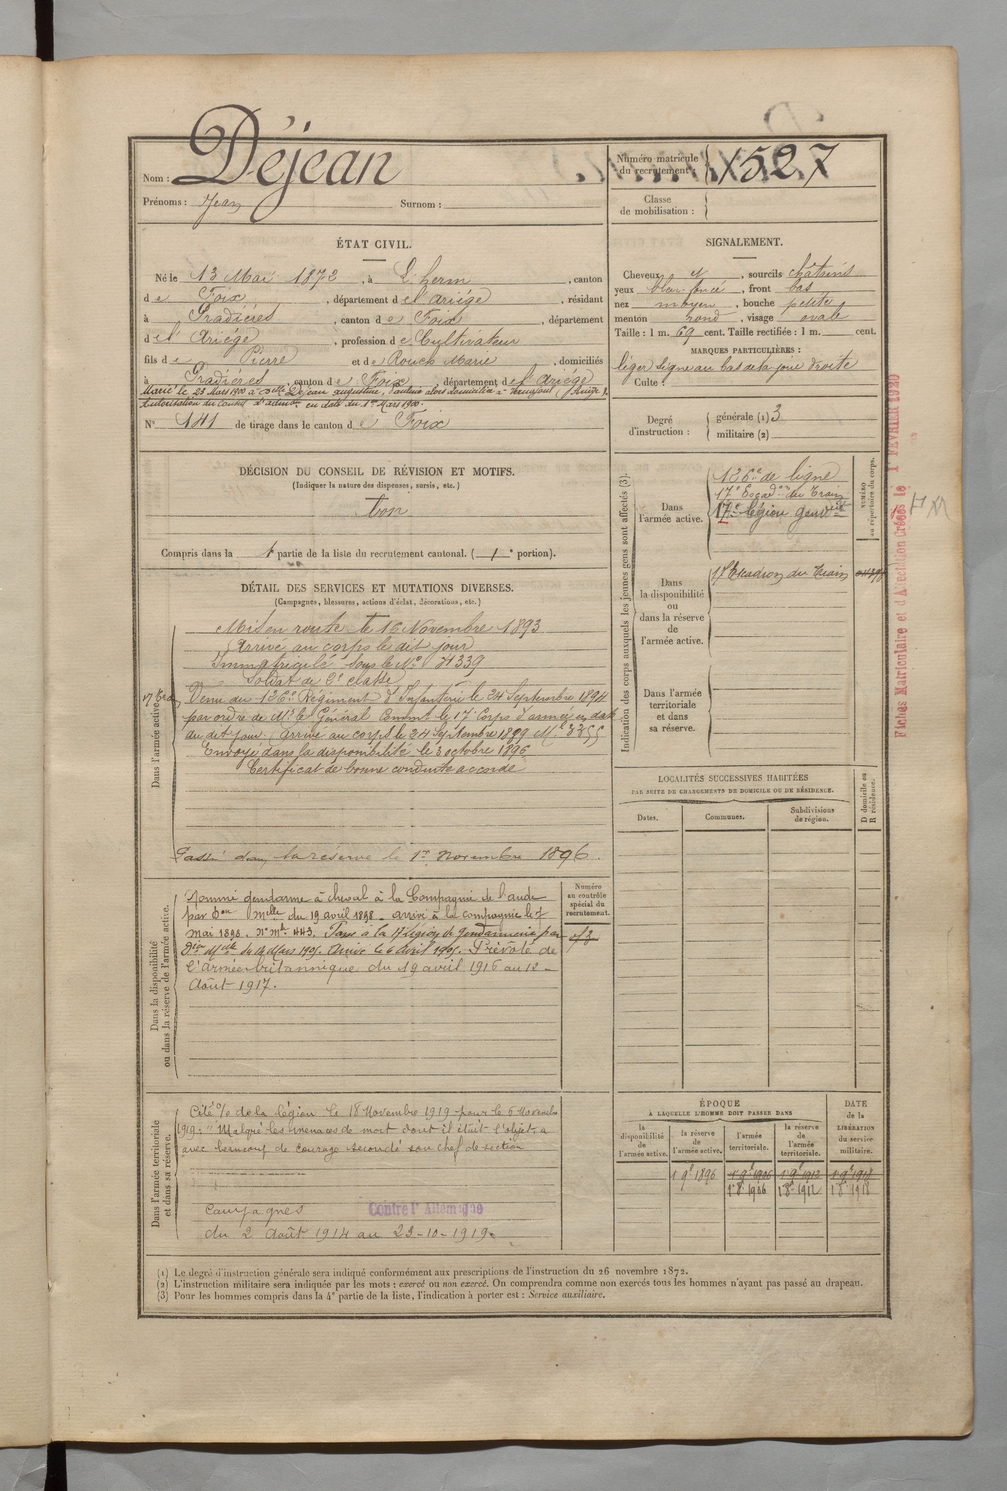 Nom : Déjean
Prénoms : Jean Surnom :
Numéro matricule du recrutement : 1527
Classe de mobilisation :
ÉTAT CIVIL.
Né le 13 Mai 1872, à L'herm, canton
de Foix, département de l'Ariège, résidant
à Pradières, canton de Foix, département
de l'Ariège, profession de Cultivateur
fils de Pierre et de Rouch Marie, domiciliés
à Pradières, canton de Foix, département de l'Ariège
Marié le 23 Mars 1900 à Delle Déjean Augustine, alors domiciliée à
Autorisation du Conseil d'admon en date du 1er Mars 1900.
N° 141 de tirage dans le canton de Foix
SIGNALEMENT.
Cheveux et, sourcils châtains
yeux bleu foncé, front bas
nez moyen, bouche petite
menton rond, visage ovale
Taille : 1 m. 69 cent. Taille rectifiée : 1 m. cent.
MARQUES PARTICULIÈRES :
léger signe au bas de la joue droite
Culte :
Degré d'instruction : générale (1) 3
militaire (2)
DÉCISION DU CONSEIL DE RÉVISION ET MOTIFS.
(Indiquer la nature des dispenses, sursis, etc.)
bon
Compris dans la 1e partie de la liste du recrutement cantonal. (1e portion).
DÉTAIL DES SERVICES ET MUTATIONS DIVERSES.
(Campagnes, blessures, actions d'éclat, décorations, etc.)
Dans l'armée active.
Mis en route le 16 Novembre 1893
Arrivé au corps le dit jour
Immatriculé sous le No 4339
Soldat de 2e classe
Venu du 126e Régiment d'Infanterie le 24 Septembre 1894
par ordre de Mr le Général Commt le 17e Corps d'armée en date
du dit jour. Arrivé au corps le 24 Septembre Mle 3355
Envoyé dans la disponibilité le 3 octobre 1896
Certificat de bonne conduite accordé
Passé dans la réserve le 1er novembre 1896.
Dans la disponibilité ou dans la réserve de l'armée active.
Nommé gendarme à cheval à la Compagnie de l'Aude
par Don Melle du 19 avril 1898 - arrivé à la compagnie le 7
mai 1898. No Mle 443. Passé à la 17e Légion de Gendarmerie par
Don Mlle du Mars 1901. Arrivé le 6 Avril 1901. Prévôté de
l'Armée britannique du 19 avril 1916 au 12
Août 1917.
Numéro au contrôle spécial du recrutement.
Dans l'armée territoriale et dans sa réserve.
Cité % de la légion le 18 Novembre 1919 pour le 6 Novembre
1919 : "Malgré les menaces de mort dont il était l'objet, a
avec beaucoup de courage secondé son chef de section
Campagnes Contre l'Allemagne
du 2 Août 1914 au 23-10-1919.
Indication des corps auxquels les jeunes gens sont affectés (3).
NUMÉRO au répertoire du corps.
Dans l'armée active.
126e de ligne
17e Escadon du Train
17e légion gendrie
Dans la disponibilité ou dans la réserve de l'armée active.
17e Escadron du Train
Dans l'armée territoriale et dans sa réserve.
Fiches Matriculaire et d'Affectation Créées le 1er FÉVRIER 1920
LOCALITÉS SUCCESSIVES HABITÉES
PAR SUITE DE CHANGEMENTS DE DOMICILE OU DE RÉSIDENCE.
Dates. Communes. Subdivisions de région. D domicile ou R résidence.
ÉPOQUE
À LAQUELLE L'HOMME DOIT PASSER DANS
la disponibilité de l'armée active. la réserve de l'armée active. l'armée territoriale. la réserve de l'armée territoriale.
DATE de la LIBÉRATION du service militaire.
1 9e 1896 1 9e 1906 1 9e 1912 1 9e 1918
1 8e 1906 1 8e 1912 1 8e 1918
(1) Le degré d'instruction générale sera indiqué conformément aux prescriptions de l'instruction du 26 novembre 1872.
(2) L'instruction militaire sera indiquée par les mots : exercé ou non exercé. On comprendra comme non exercés tous les hommes n'ayant pas passé au drapeau.
(3) Pour les hommes compris dans la 4e partie de la liste, l'indication à porter est : Service auxiliaire.